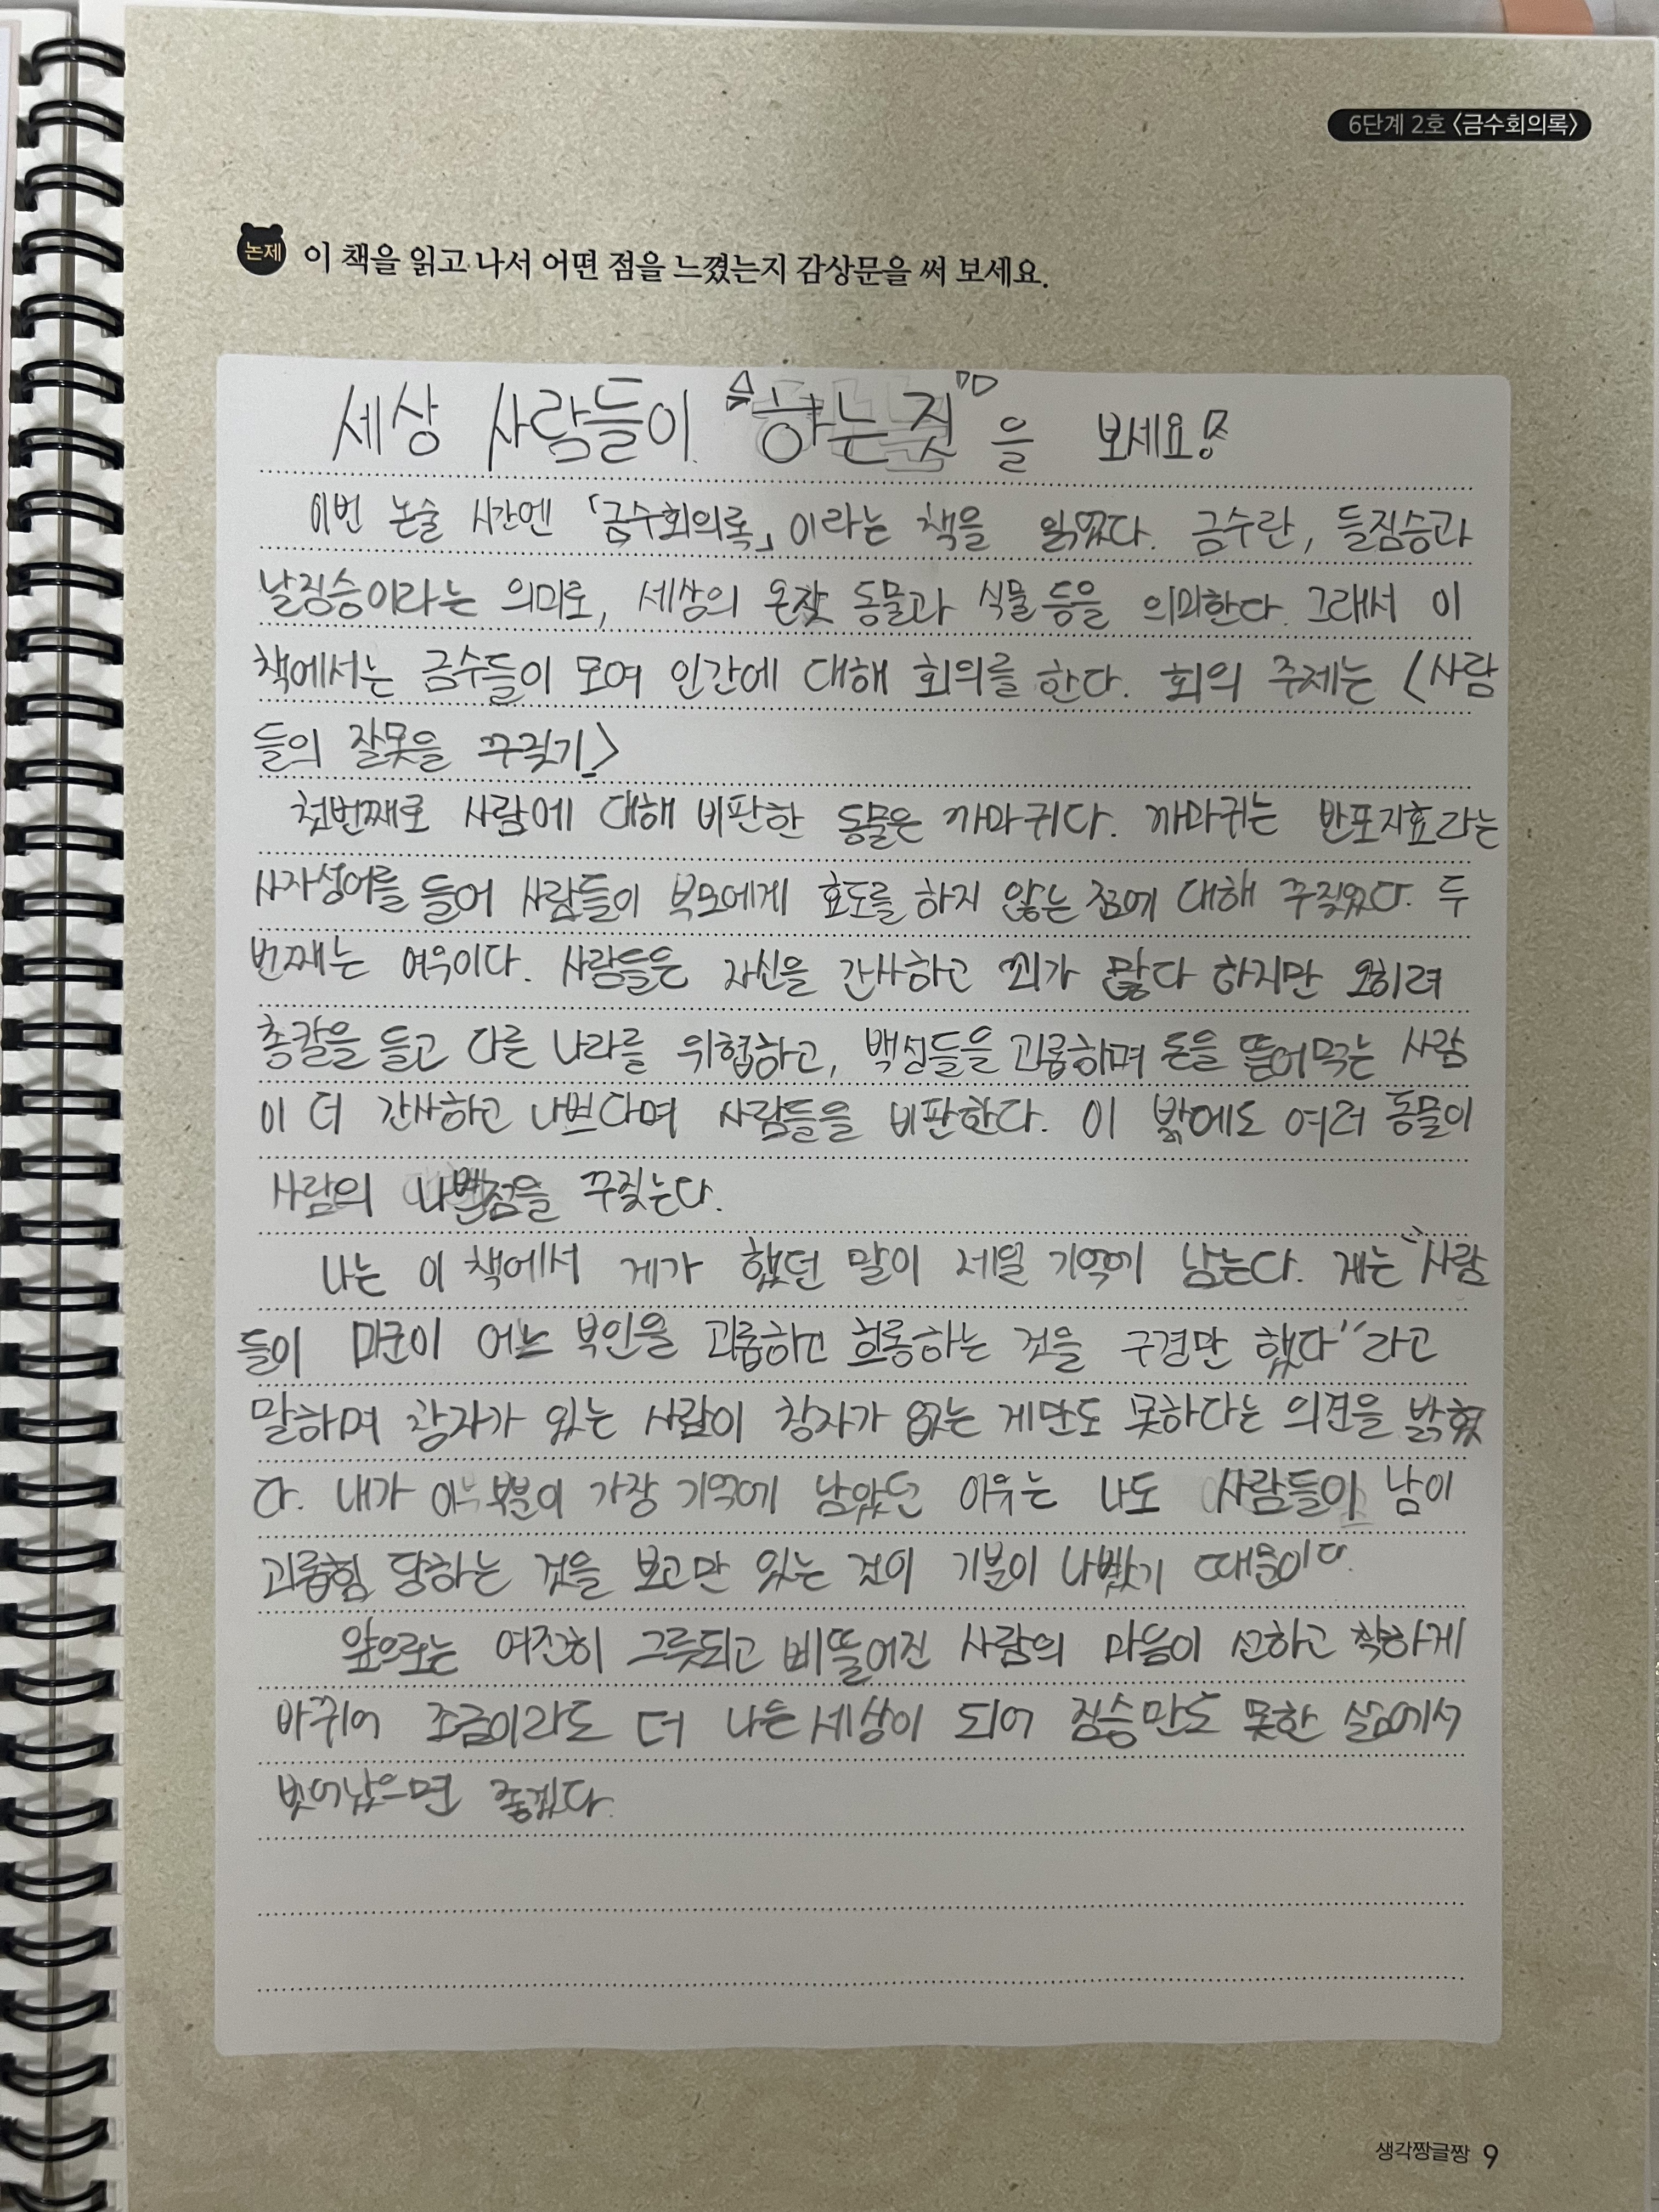 6단계 2호 〈금수회의록〉
논제 이 책을 읽고 나서 어떤 점을 느꼈는지 감상문을 써 보세요.
세상 사람들이 "하는 짓"을 보세요!
이번 논술 시간엔 「금수회의록」이라는 책을 읽었다. 금수란, 들짐승과
날짐승이라는 의미로, 세상의 온갖 동물과 식물 등을 의미한다. 그래서 이
책에서는 금수들이 모여 인간에 대해 회의를 한다. 회의 주제는 〈사람
들의 잘못을 꾸짖기〉
첫번째로 사람에 대해 비판한 동물은 까마귀다. 까마귀는 반포지효라는
사자성어를 들어 사람들이 부모에게 효도를 하지 않는 점에 대해 꾸짖었다. 두
번째는 여우이다. 사람들은 자신을 간사하고 꾀가 많다 하지만 오히려
총칼을 들고 다른 나라를 위협하고, 백성들을 괴롭히며 돈을 뜯어먹는 사람
이 더 간사하고 나쁘다며 사람들을 비판한다. 이 밖에도 여러 동물이
사람의 나쁜점을 꾸짖는다.
나는 이 책에서 게가 했던 말이 제일 기억에 남는다. 게는 "사람
들이 미군이 어느 부인을 괴롭히고 희롱하는 것을 구경만 했다"라고
말하며 창자가 있는 사람이 창자가 없는 게만도 못하다는 의견을 밝혔
다. 내가 이 부분이 가장 기억에 남았던 이유는 나도 사람들이 남이
괴롭힘 당하는 것을 보고만 있는 것이 기분이 나빴기 때문이다.
앞으로는 여전히 그릇되고 삐뚤어진 사람의 마음이 선하고 착하게
바뀌어 조금이라도 더 나은 세상이 되어 짐승만도 못한 삶에서
벗어났으면 좋겠다.
생각짱글짱 9